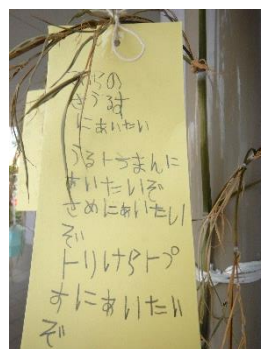 さうるす
にあいたい
うるトらまんに
あいたいぞ
さめにあいたい
ぞ
トリけらトプ
すにあいたい
ぞ